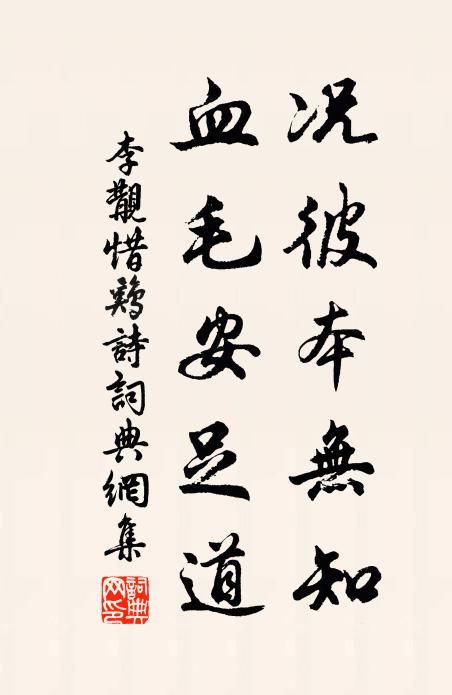 况彼本無知
血毛安足道
李覯惜鷄詩詞典網集
詞典網印